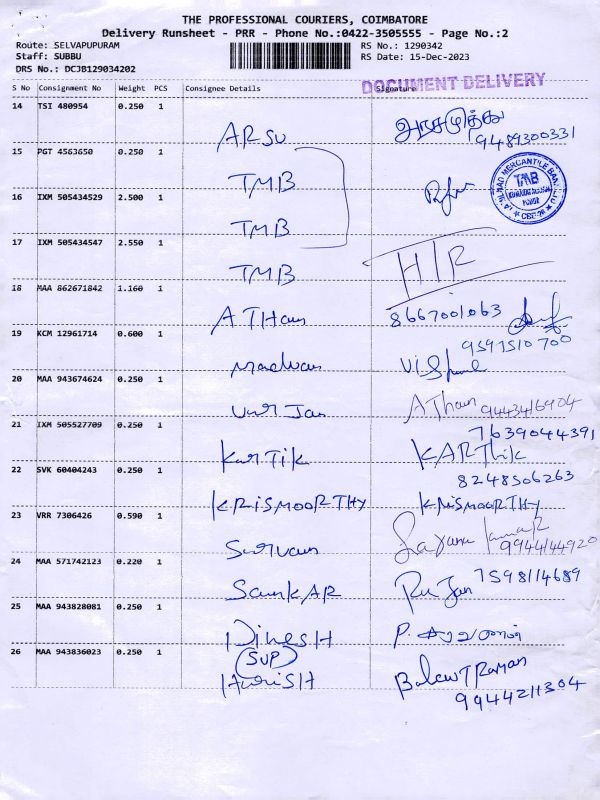 THE PROFESSIONAL COURIERS, COIMBATORE
Delivery Runsheet - PRR - Phone No.:0422-3505555 - Page No.:2
Route: SELVAPUPURAM RS No.: 1290342
Staff: SUBBU RS Date: 15-Dec-2023
DRS No.: DCJB129034202
DOCUMENT DELIVERY
S No Consignment No Weight PCS Consignee Details Signature
14 TSI 480954 0.250 1
ARSU அரசமுத்து
9489300331
15 PGT 4563650 0.250 1
TMB
16 IXM 505434529 2.500 1
TMB
17 IXM 505434547 2.550 1
TMB H/R
18 MAA 862671842 1.160 1
ATHam 8667001063
19 KCM 12961714 0.600 1
9597510700
20 MAA 943674624 0.250 1
AJham 9443416904
21 IXM 505527709 0.250 1
7639044391
KarTik KARThik
22 SVK 60404243 0.250 1
8248506263
KRISMOORTHY KRISMOORTHY
23 VRR 7306426 0.590 1
9944144920
24 MAA 571742123 0.220 1
7598114689
SanKAR
25 MAA 943828081 0.250 1
DinesH P. சரவணன்
26 MAA 943836023 0.250 1
(SUP)
HariSH
9944211304